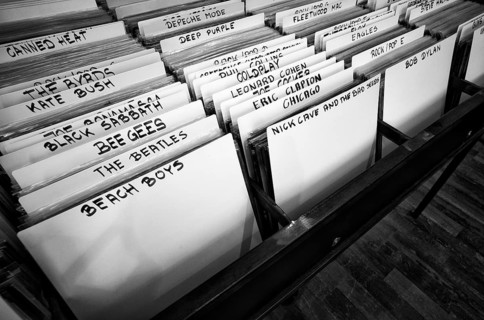 BEACH BOYS
THE BEATLES
BEE GEES
BLACK SABBATH
JOE BONAMASSA
KATE BUSH
THE BYRDS
CANNED HEAT
NICK CAVE AND THE BAD SEEDS
CHICAGO
ERIC CLAPTON
LEONARD COHEN
COLDPLAY
DEEP PURPLE
DEPECHE MODE
BOB DYLAN
ROCK/POP
EAGLES
FLEETWOOD MAC